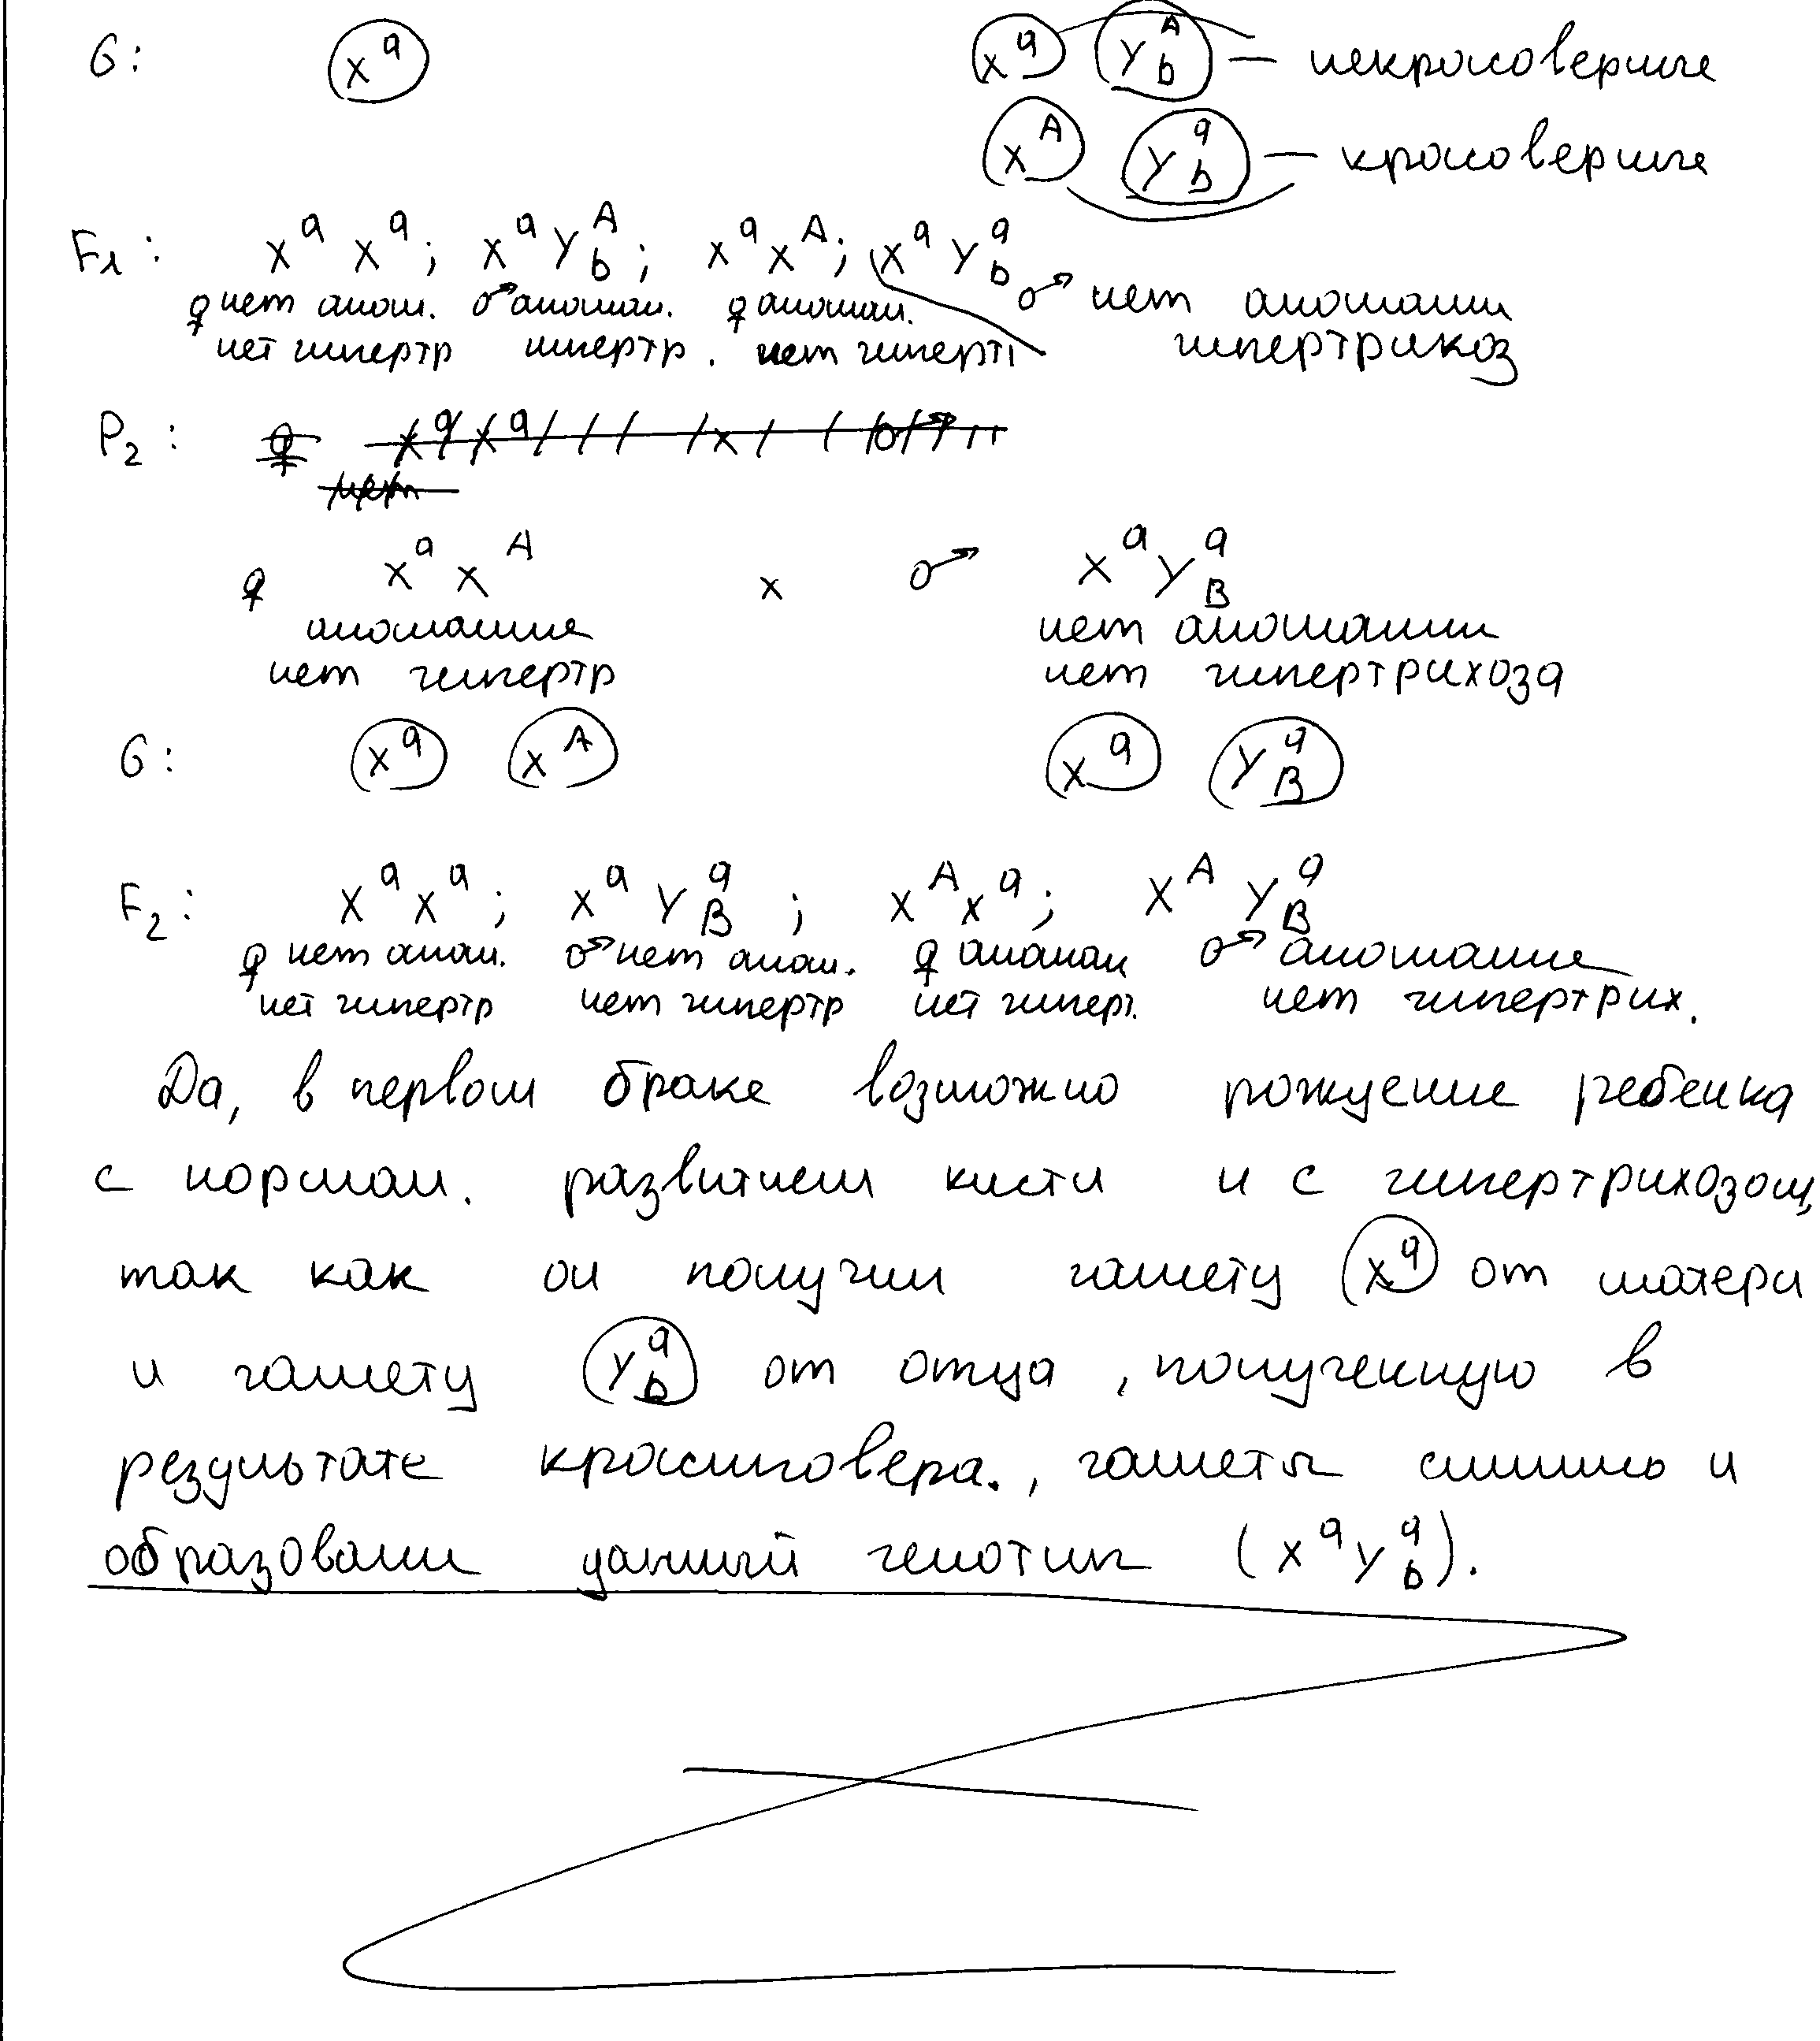 G: X^a X^a Y^A_b — некроссоверные
X^A Y^a_b — кроссоверные
F1: X^a X^a; X^a Y^A_b; X^a X^A; X^a Y^a_b
♀ нет аном. ♂ аномал. ♀ аномал. ♂ нет аномалии
нет гипертр гипертр. нет гиперт гипертрихоз
P2: ♀ X^a X^a x ♂
нет
♀ X^a X^A x ♂ X^a Y^a_B
аномалия нет аномалии
нет гипертр нет гипертрихоза
G: X^a X^A X^a Y^a_B
F2: X^a X^a; X^a Y^a_B; X^A X^a; X^A Y^a_B
♀ нет аном. ♂ нет аном. ♀ аномал ♂ аномалия
нет гипертр нет гипертр нет гиперт. нет гипертрих.
Да, в первом браке возможно рождение ребенка
с нормал. развитием кисти и с гипертрихозом,
так как он получил гамету X^a от матери
и гамету Y^a_b от отца, полученную в
результате кроссинговера., гаметы слились и
образовали данный генотип (X^a Y^a_b).